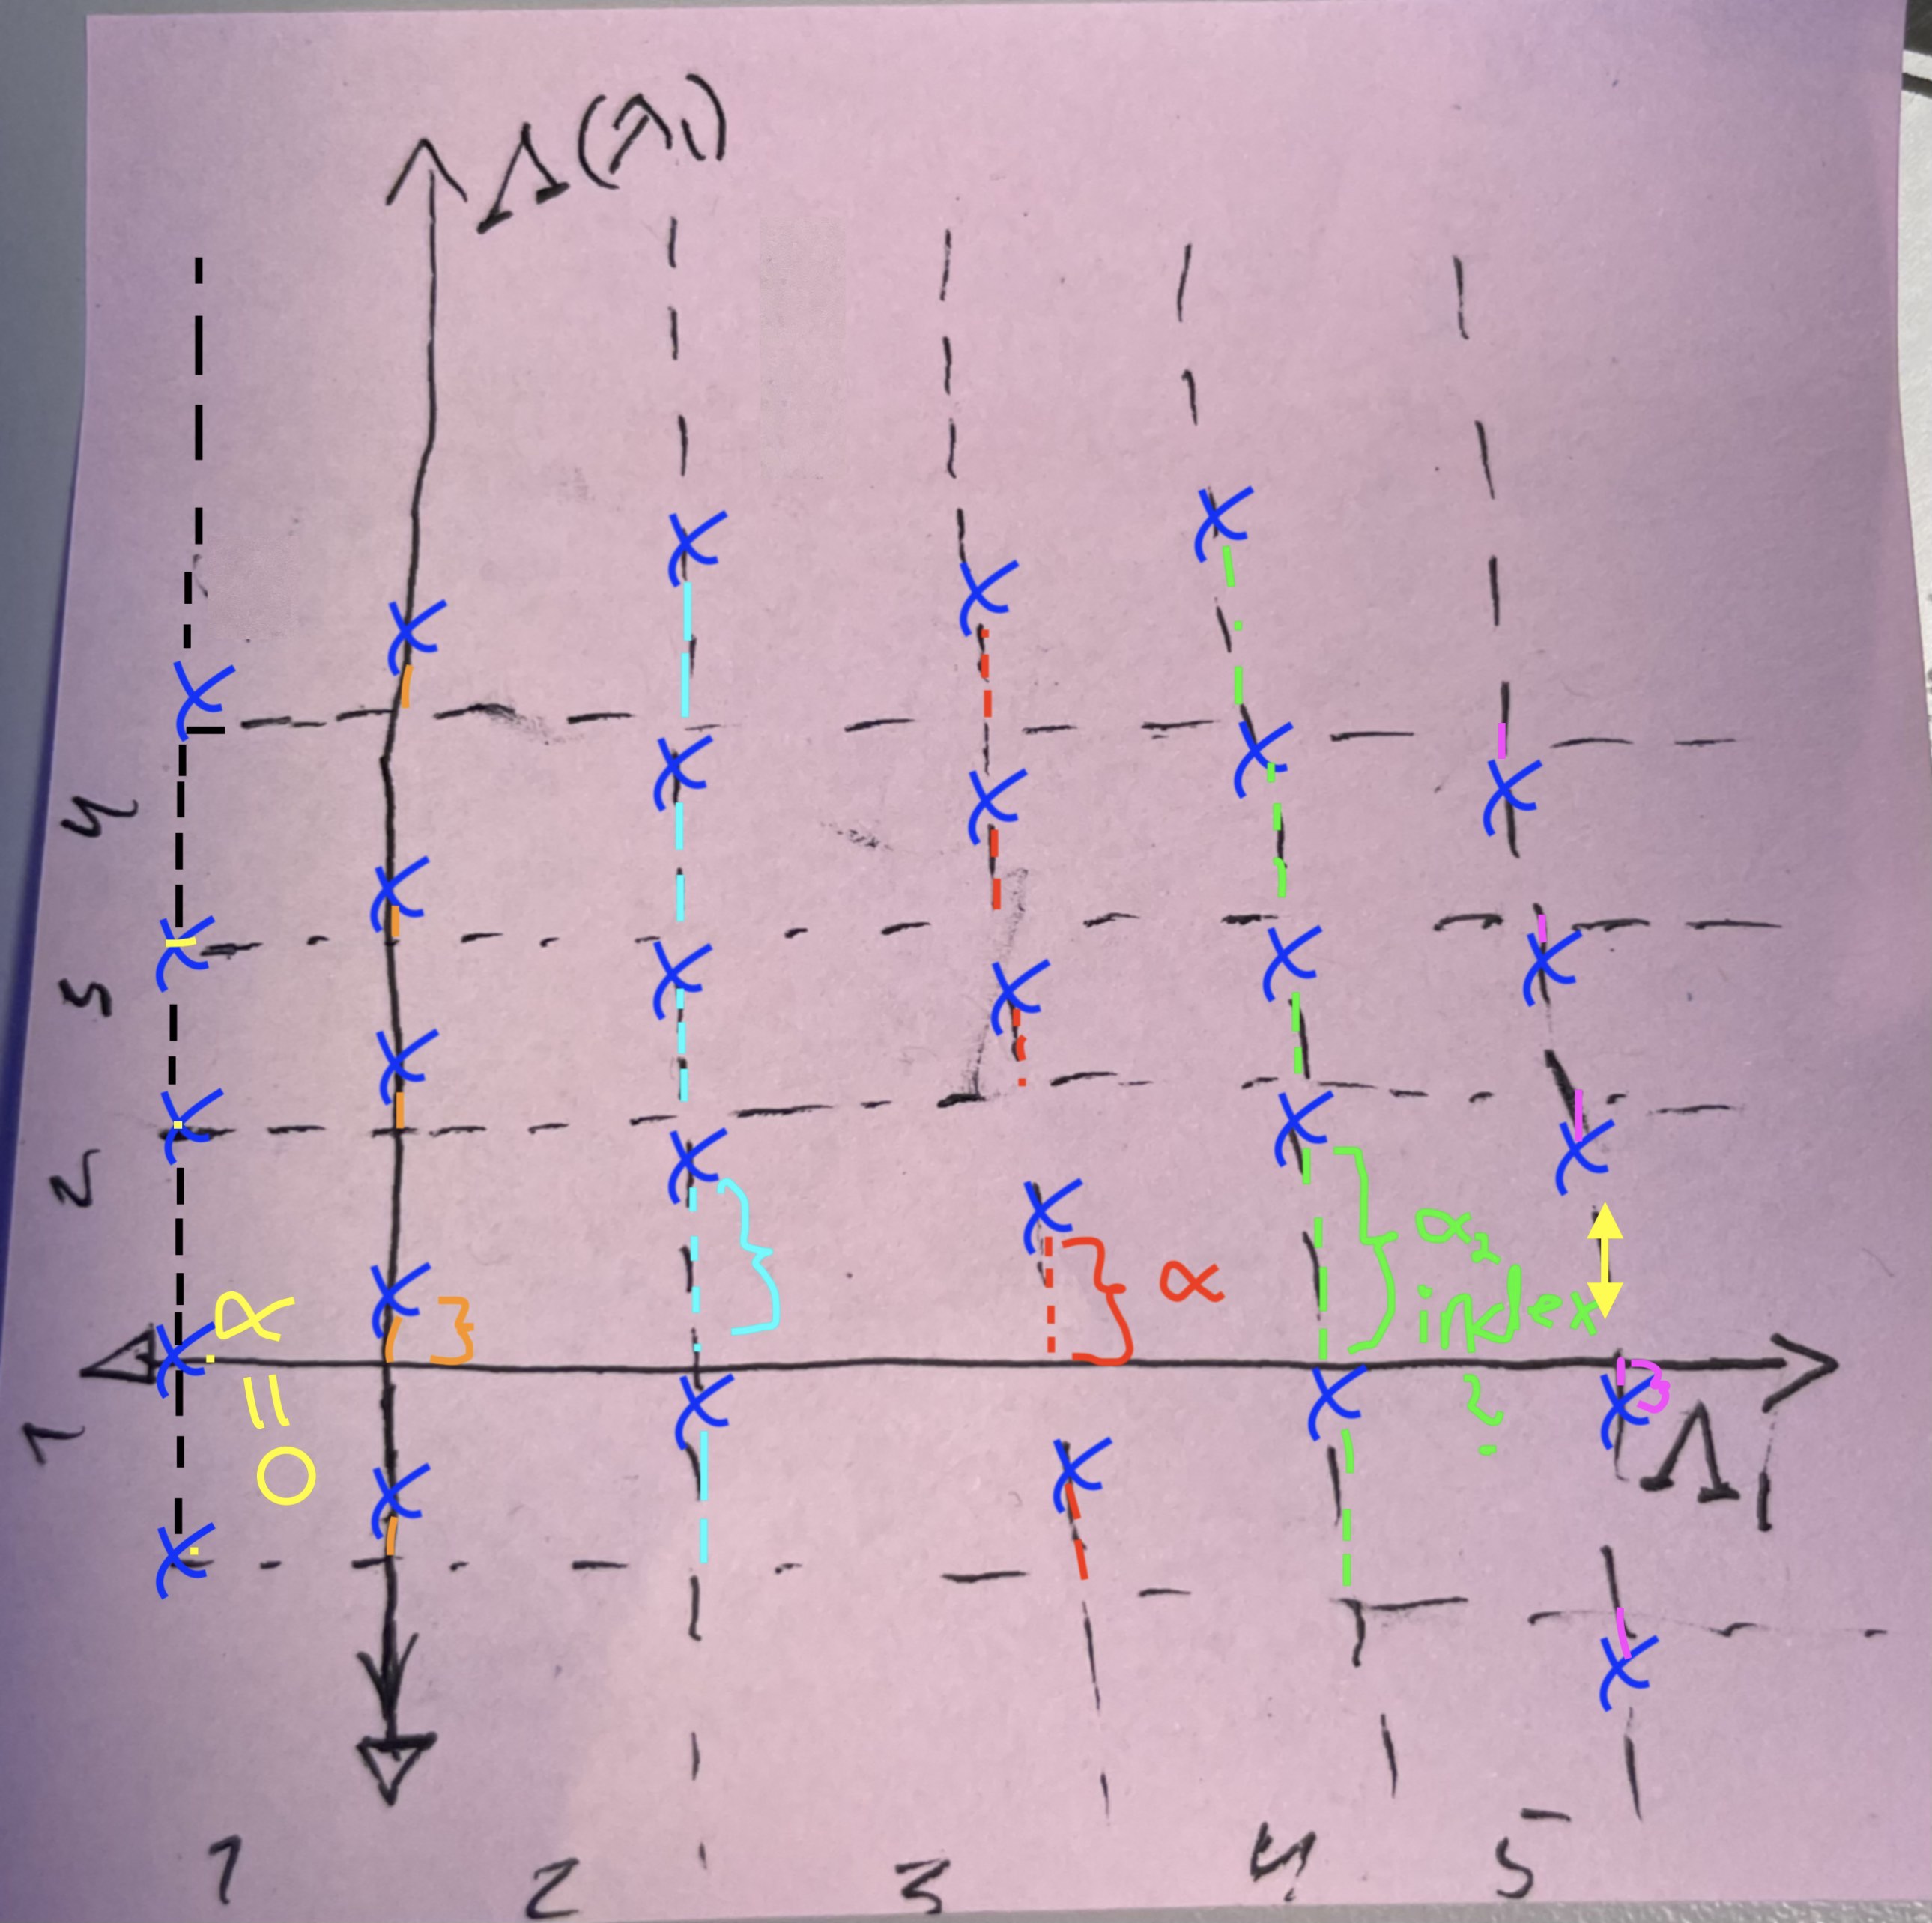 Λ(λ₁)
4
3
2
1
α = 0
α
α₂
index
?
Λ₁
1
2
3
4
5